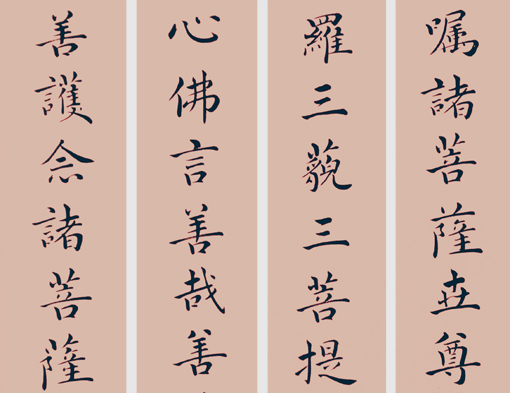 嘱諸菩薩世尊
羅三藐三菩提
心佛言善哉善
善護念諸菩薩